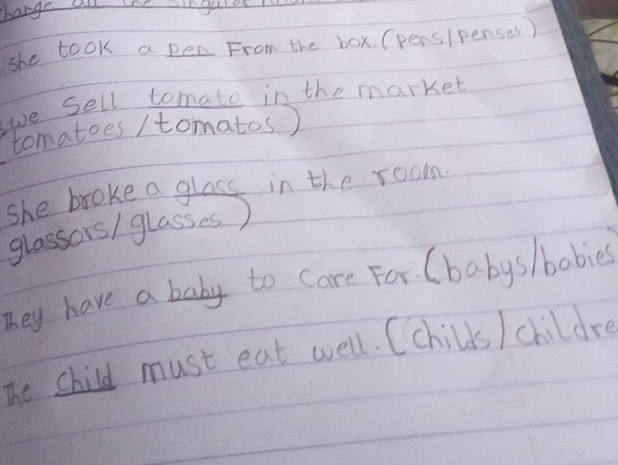 change all the singular
she took a pen From the box. (pens/penses)
we sell tomato in the market
tomatoes/tomatos)
she broke a glass in the room.
glassors/glasses)
They have a baby to care For. (babys/babies
The child must eat well. (childs/childre